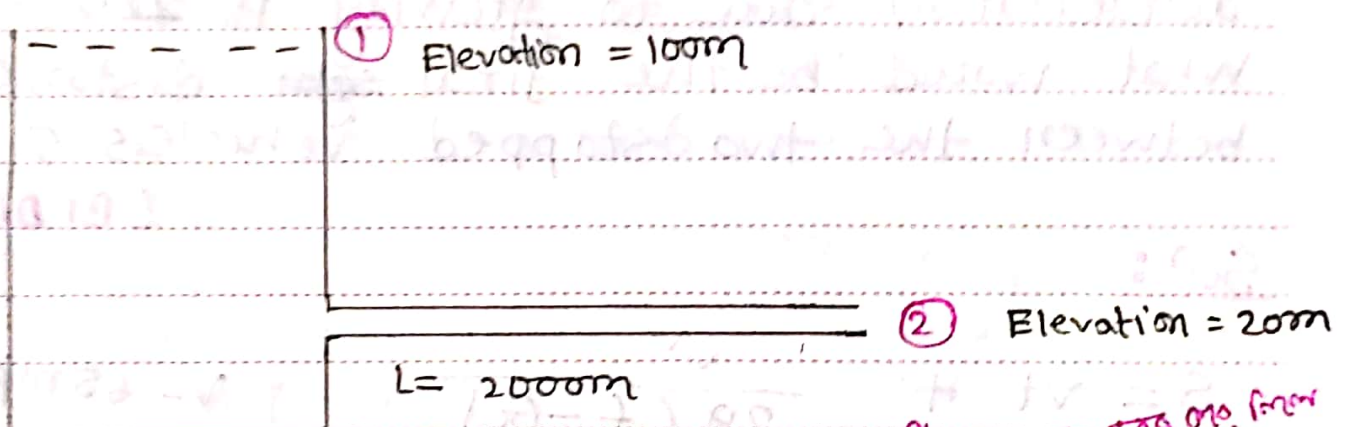 ① Elevation = 100m
② Elevation = 20m
L= 2000m